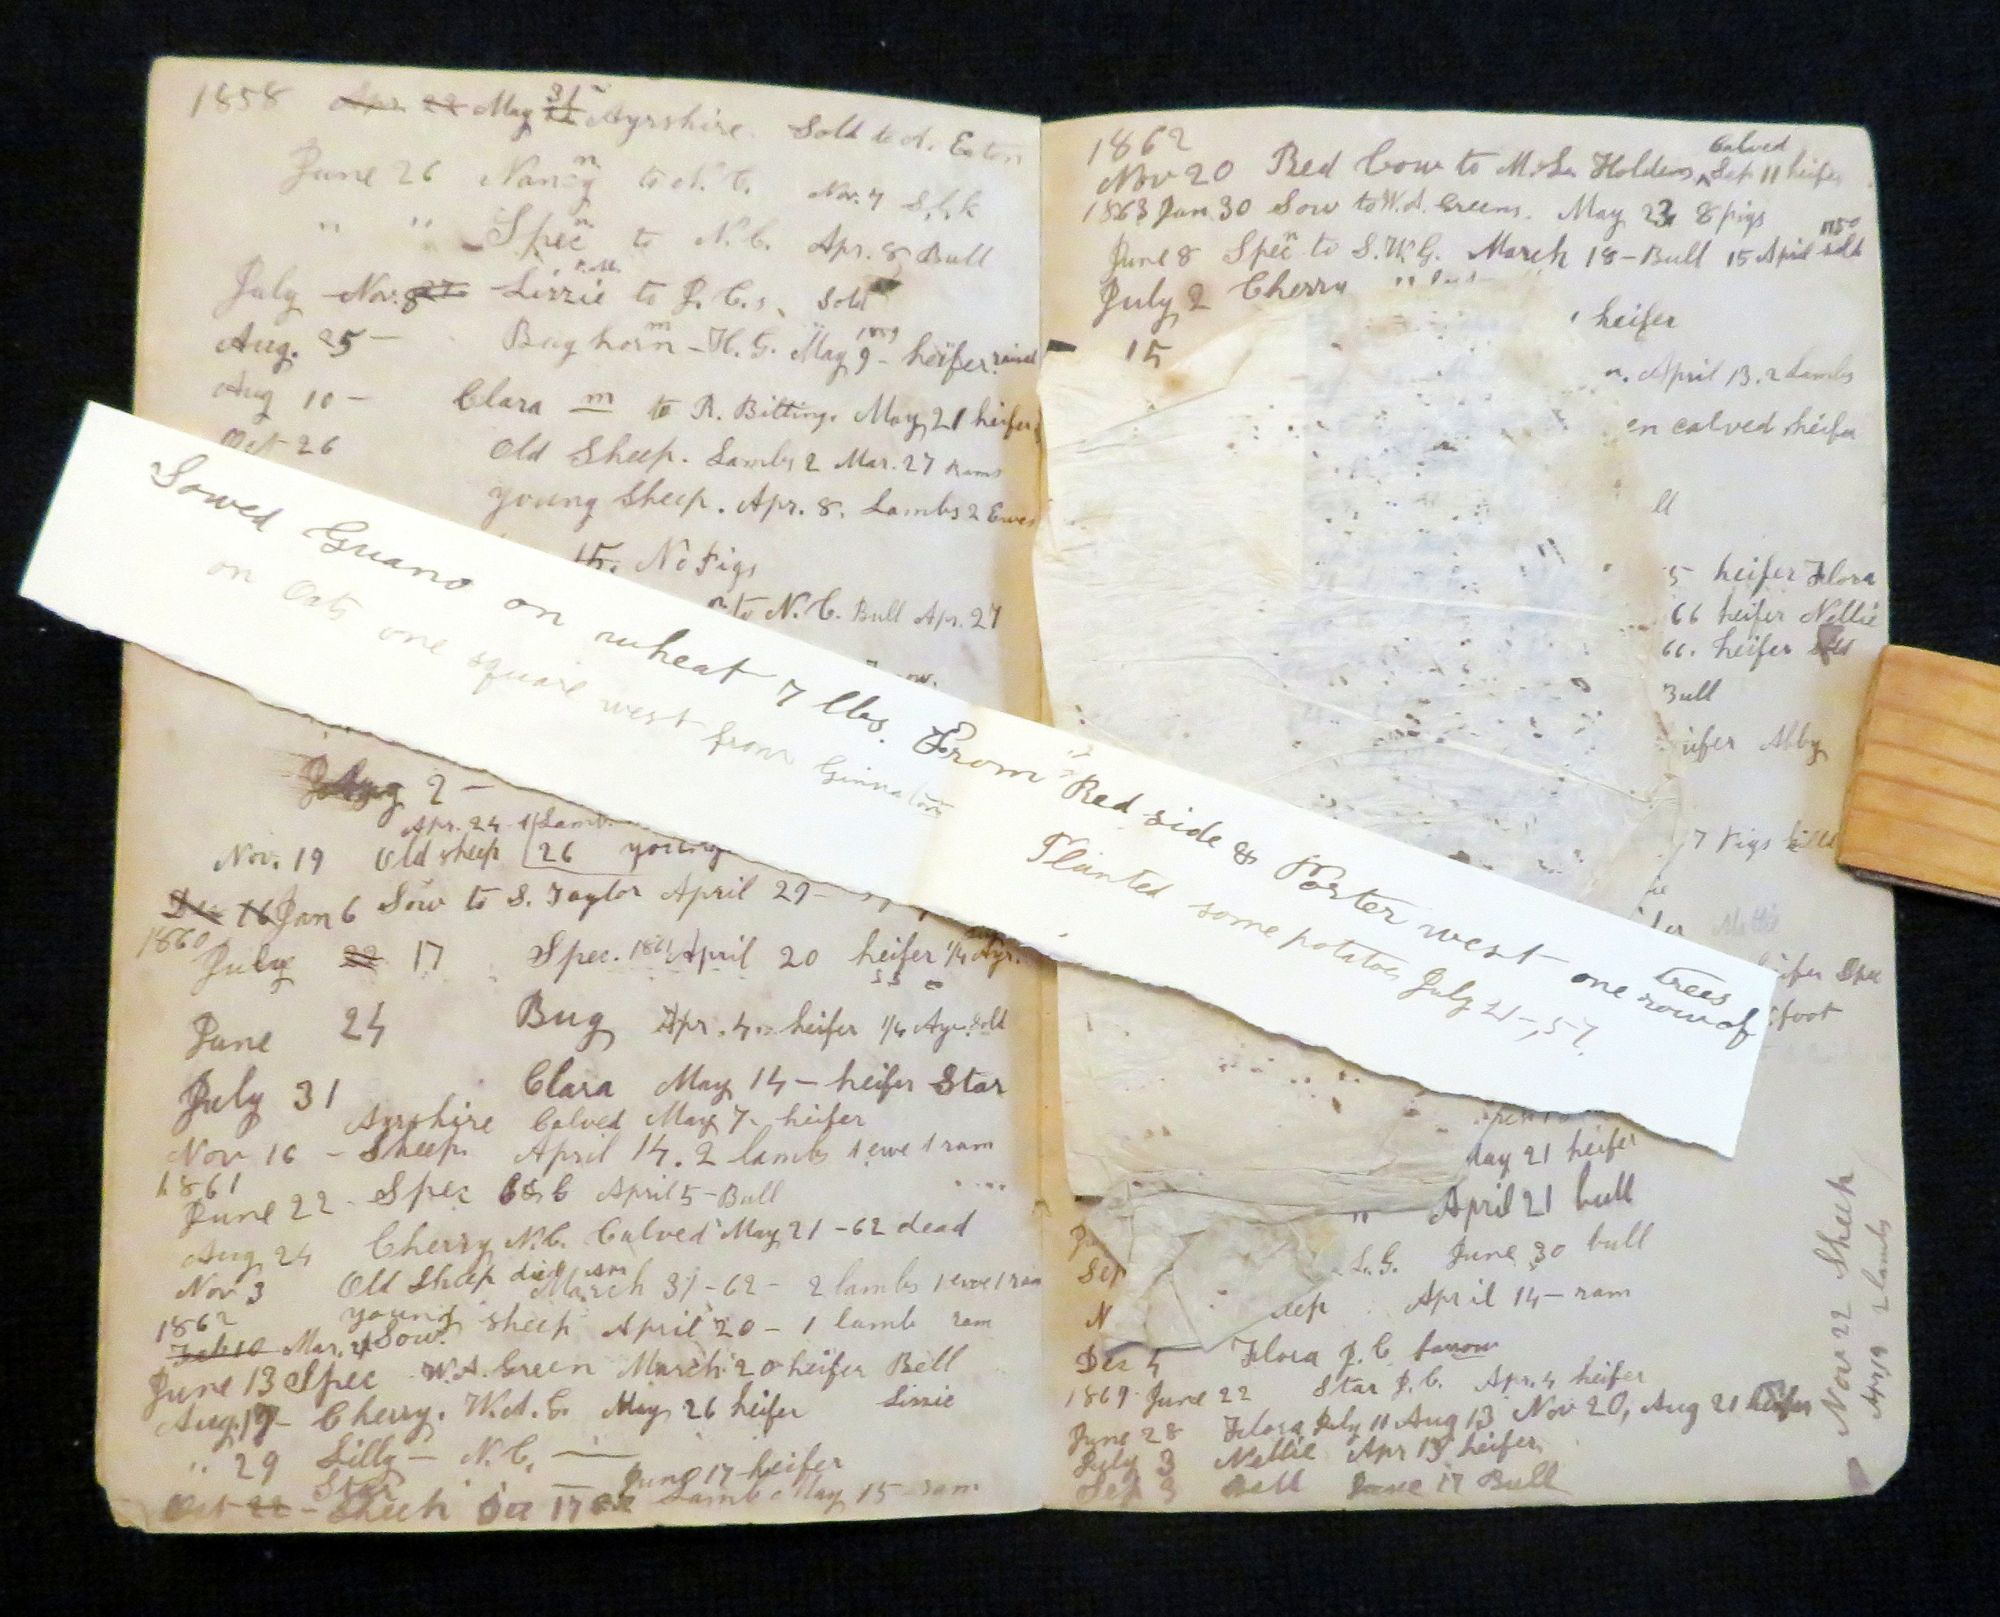 1858 May 31 Ayrshire. Sold to A. Eaton
June 26 Nancy to N. C. Nov. 7
" " Spec to N. C. Apr. 8 Bull
July Nov. 8 Lizzie to J. C.s, Sold
Aug. 25 - Bughorn - H. G. May 9 - 1859 heifer raised
Aug 10 - Clara m to R. Billing. May 21 heifer
Oct 26 Old Sheep. Lambs 2 Mar. 27 rams
young Sheep. Apr. 8. Lambs 2 Ewes
15. No Pigs
to N. C. Bull Apr. 27
ow.
Aug 2 -
Apr. 24 Lamb
Nov. 19 Old sheep 26 young
Dec 16 Jan 6 Sow to S. Taylor April 29 -
1860
July 22 17 Spec. 1861 April 20 heifer 1/4 Ayr.
June 24 Bug Apr. 4 heifer 1/4 Ayr. Sold
July 31 Clara May 14 - heifer Star
Ayrshire Calved May 7 - heifer
Nov 16 - Sheep April 14. 2 lambs 1 ewe 1 ram
1861
June 22 - Spec April 5 - Bull
Aug 24 Cherry N.C. Calved May 21 - 62 dead
Nov 3 Old Sheep died March 31 - 62 - 2 lambs 1 ewe 1 ram
1862 young sheep April 20 - 1 lamb ram
Feb 10 Mar. 21 Sow.
June 13 Spec W. A. Green March 20 heifer Bell
Aug. 19 - Cherry. W. A. G. May 26 heifer Lizzie
" 29 Lilly - N. C. —
Star — June 17 - heifer
Oct 22 - Sheep Dec 17 Lamb May 15 - ram
Sowed Guano on wheat 7 lbs. From Red side & Porter west one row of trees
on Oats one square west from
Planted some potatoes July 21 -, 57.
1862
Nov 20 Red Cow to M. L. Holdens, Calved Sep 11 heifer
1863 Jan 30 Sow to W. A. Greens. May 23 8 pigs
June 8 Spec to S. W. G. March 18 - Bull 15 April sold 1150
July 2 Cherry
heifer
15
April 13. 2 Lambs
en calved heifer
ll
5 heifer Flora
66 heifer Nellie
66. heifer
Bull
ifer Abby
7 Pigs killed
fer Nettie
heifer Spec
foot
May 21 heifer
" April 21 bull
Sep L. G. June 30 bull
N eep April 14 - ram
Dec 4 Flora J. C farrow
1869 June 22 Star J. C. Apr. 4 heifer
June 28 Flora July 11 Aug 13 Nov 20, Aug 21 heifer
July 3 Nellie Apr 13 heifer
Sep 3 Bell June 17 Bull
Nov 22 Sheep
Apr, 19 2 lambs